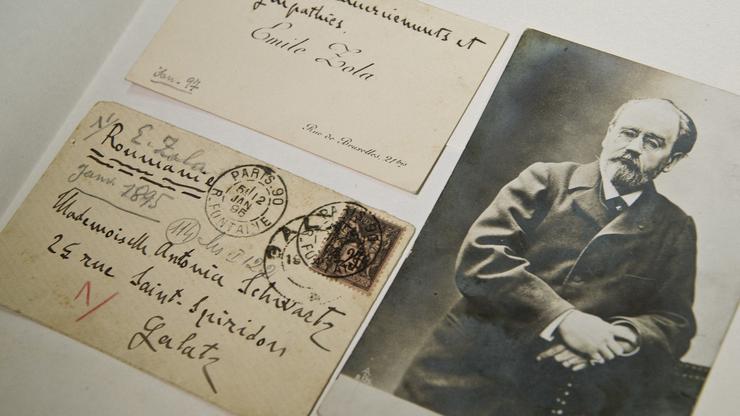 remerciements et
sympathies.
Emile Zola
Janv. 97
Rue de Bruxelles, 21bis
E. Zola
Roumanie
Janv. 1895
PARIS-90
12
JANV
R. FONTAINE
Mademoiselle Antonia Schwartz
25 rue Saint-Spiridon
Galatz